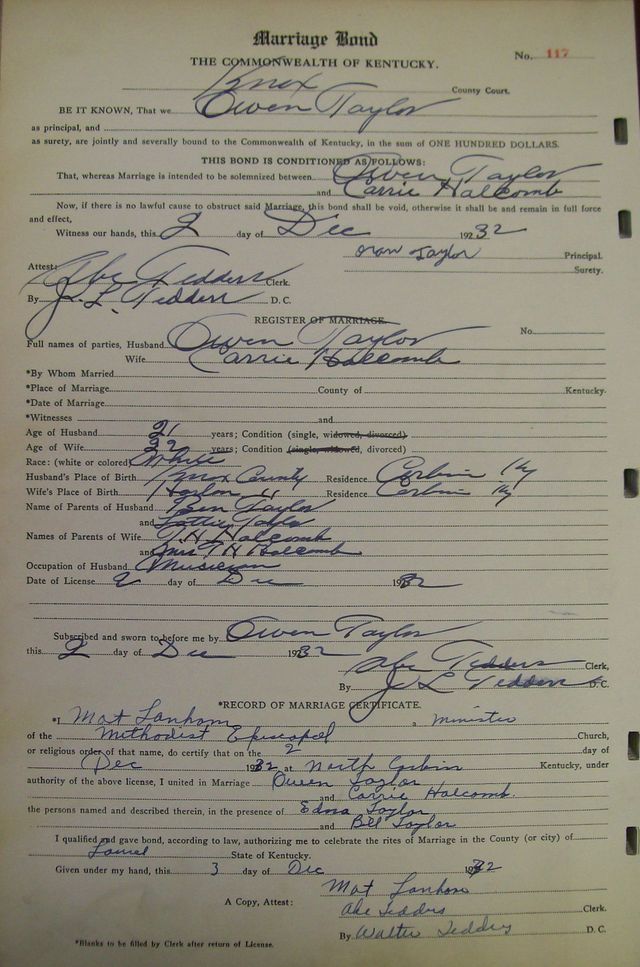 Marriage Bond
No. 117
THE COMMONWEALTH OF KENTUCKY.
Knox County Court.
BE IT KNOWN, That we Owen Taylor
as principal, and
as surety, are jointly and severally bound to the Commonwealth of Kentucky, in the sum of ONE HUNDRED DOLLARS.
THIS BOND IS CONDITIONED AS FOLLOWS:
That, whereas Marriage is intended to be solemnized between Owen Taylor
and Carrie Halcomb
Now, if there is no lawful cause to obstruct said Marriage, this bond shall be void, otherwise it shall be and remain in full force
and effect,
Witness our hands, this 2 day of Dec 1932
Taylor Principal.
Surety.
Attest: Abe Tedders Clerk.
By J. L. Tedders D. C.
REGISTER OF MARRIAGE.
No.
Full names of parties, Husband Owen Taylor
Wife Carrie Halcomb
*By Whom Married
*Place of Marriage County of Kentucky.
*Date of Marriage
*Witnesses and
Age of Husband 21 years; Condition (single, widowed, divorced)
Age of Wife 22 years; Condition (single, widowed, divorced)
Race: (white or colored) White
Husband's Place of Birth Knox County Residence Corbin Ky
Wife's Place of Birth Harlan " Residence Corbin Ky
Name of Parents of Husband Taylor
and Lottie Taylor
Names of Parents of Wife T. H. Halcomb
and Mrs T H Halcomb
Occupation of Husband Musician
Date of License 2 day of Dec 1932
Subscribed and sworn to before me by Owen Taylor
this 2 day of Dec 1932
Abe Tedders Clerk,
By J. L. Tedders D. C.
*RECORD OF MARRIAGE CERTIFICATE.
*I Mat Lanham a minister
of the Methodist Episcopel Church,
or religious order of that name, do certify that on the 2 day of
Dec 1932 at North Corbin Kentucky, under
authority of the above license, I united in Marriage Owen Taylor
and Carrie Halcomb.
the persons named and described therein, in the presence of Edna Taylor
and Bill Taylor
I qualified and gave bond, according to law, authorizing me to celebrate the rites of Marriage in the County (or city) of
Laurel State of Kentucky.
Given under my hand, this 3 day of Dec 1932
Mat Lanham
A Copy, Attest: Abe Tedders Clerk.
By Walter Tedders D. C.
*Blanks to be filled by Clerk after return of License.